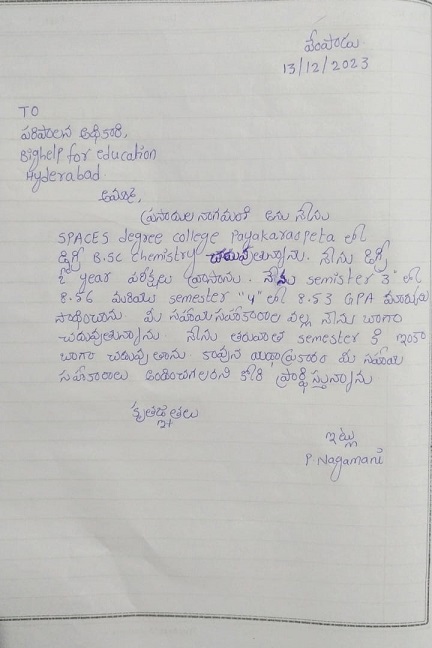 వేంపాడు
13/12/2023
TO
పరిపాలన అధికారి,
Bighelp for education
Hyderabad
అమ్మా,
ప్రసాదుల నాగమణి అను నేను
SPACES degree college Payakaraopeta లో
డిగ్రీ B.SC Chemistry చదువుతున్నాను. నేను డిగ్రీ
2 year పరీక్షలు వ్రాసాను. నేను semister 3 లో
8.56 మరియు semester "4" లో 8.53 GPA మార్కులు
సాధించాను మీ సహాయసహకారాల వల్ల నేను బాగా
చదువుతున్నాను. నేను తరువాత semester కి ఇంకా
బాగా చదువుతాను కావున యథాప్రకారం మీ సహాయ
సహకారాలు అందించగలరని కోరి ప్రార్థిస్తున్నాను
కృతజ్ఞతలు
ఇట్లు
P. Nagamani